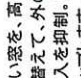 い窓を、高
替えて、外の
スを抑制。